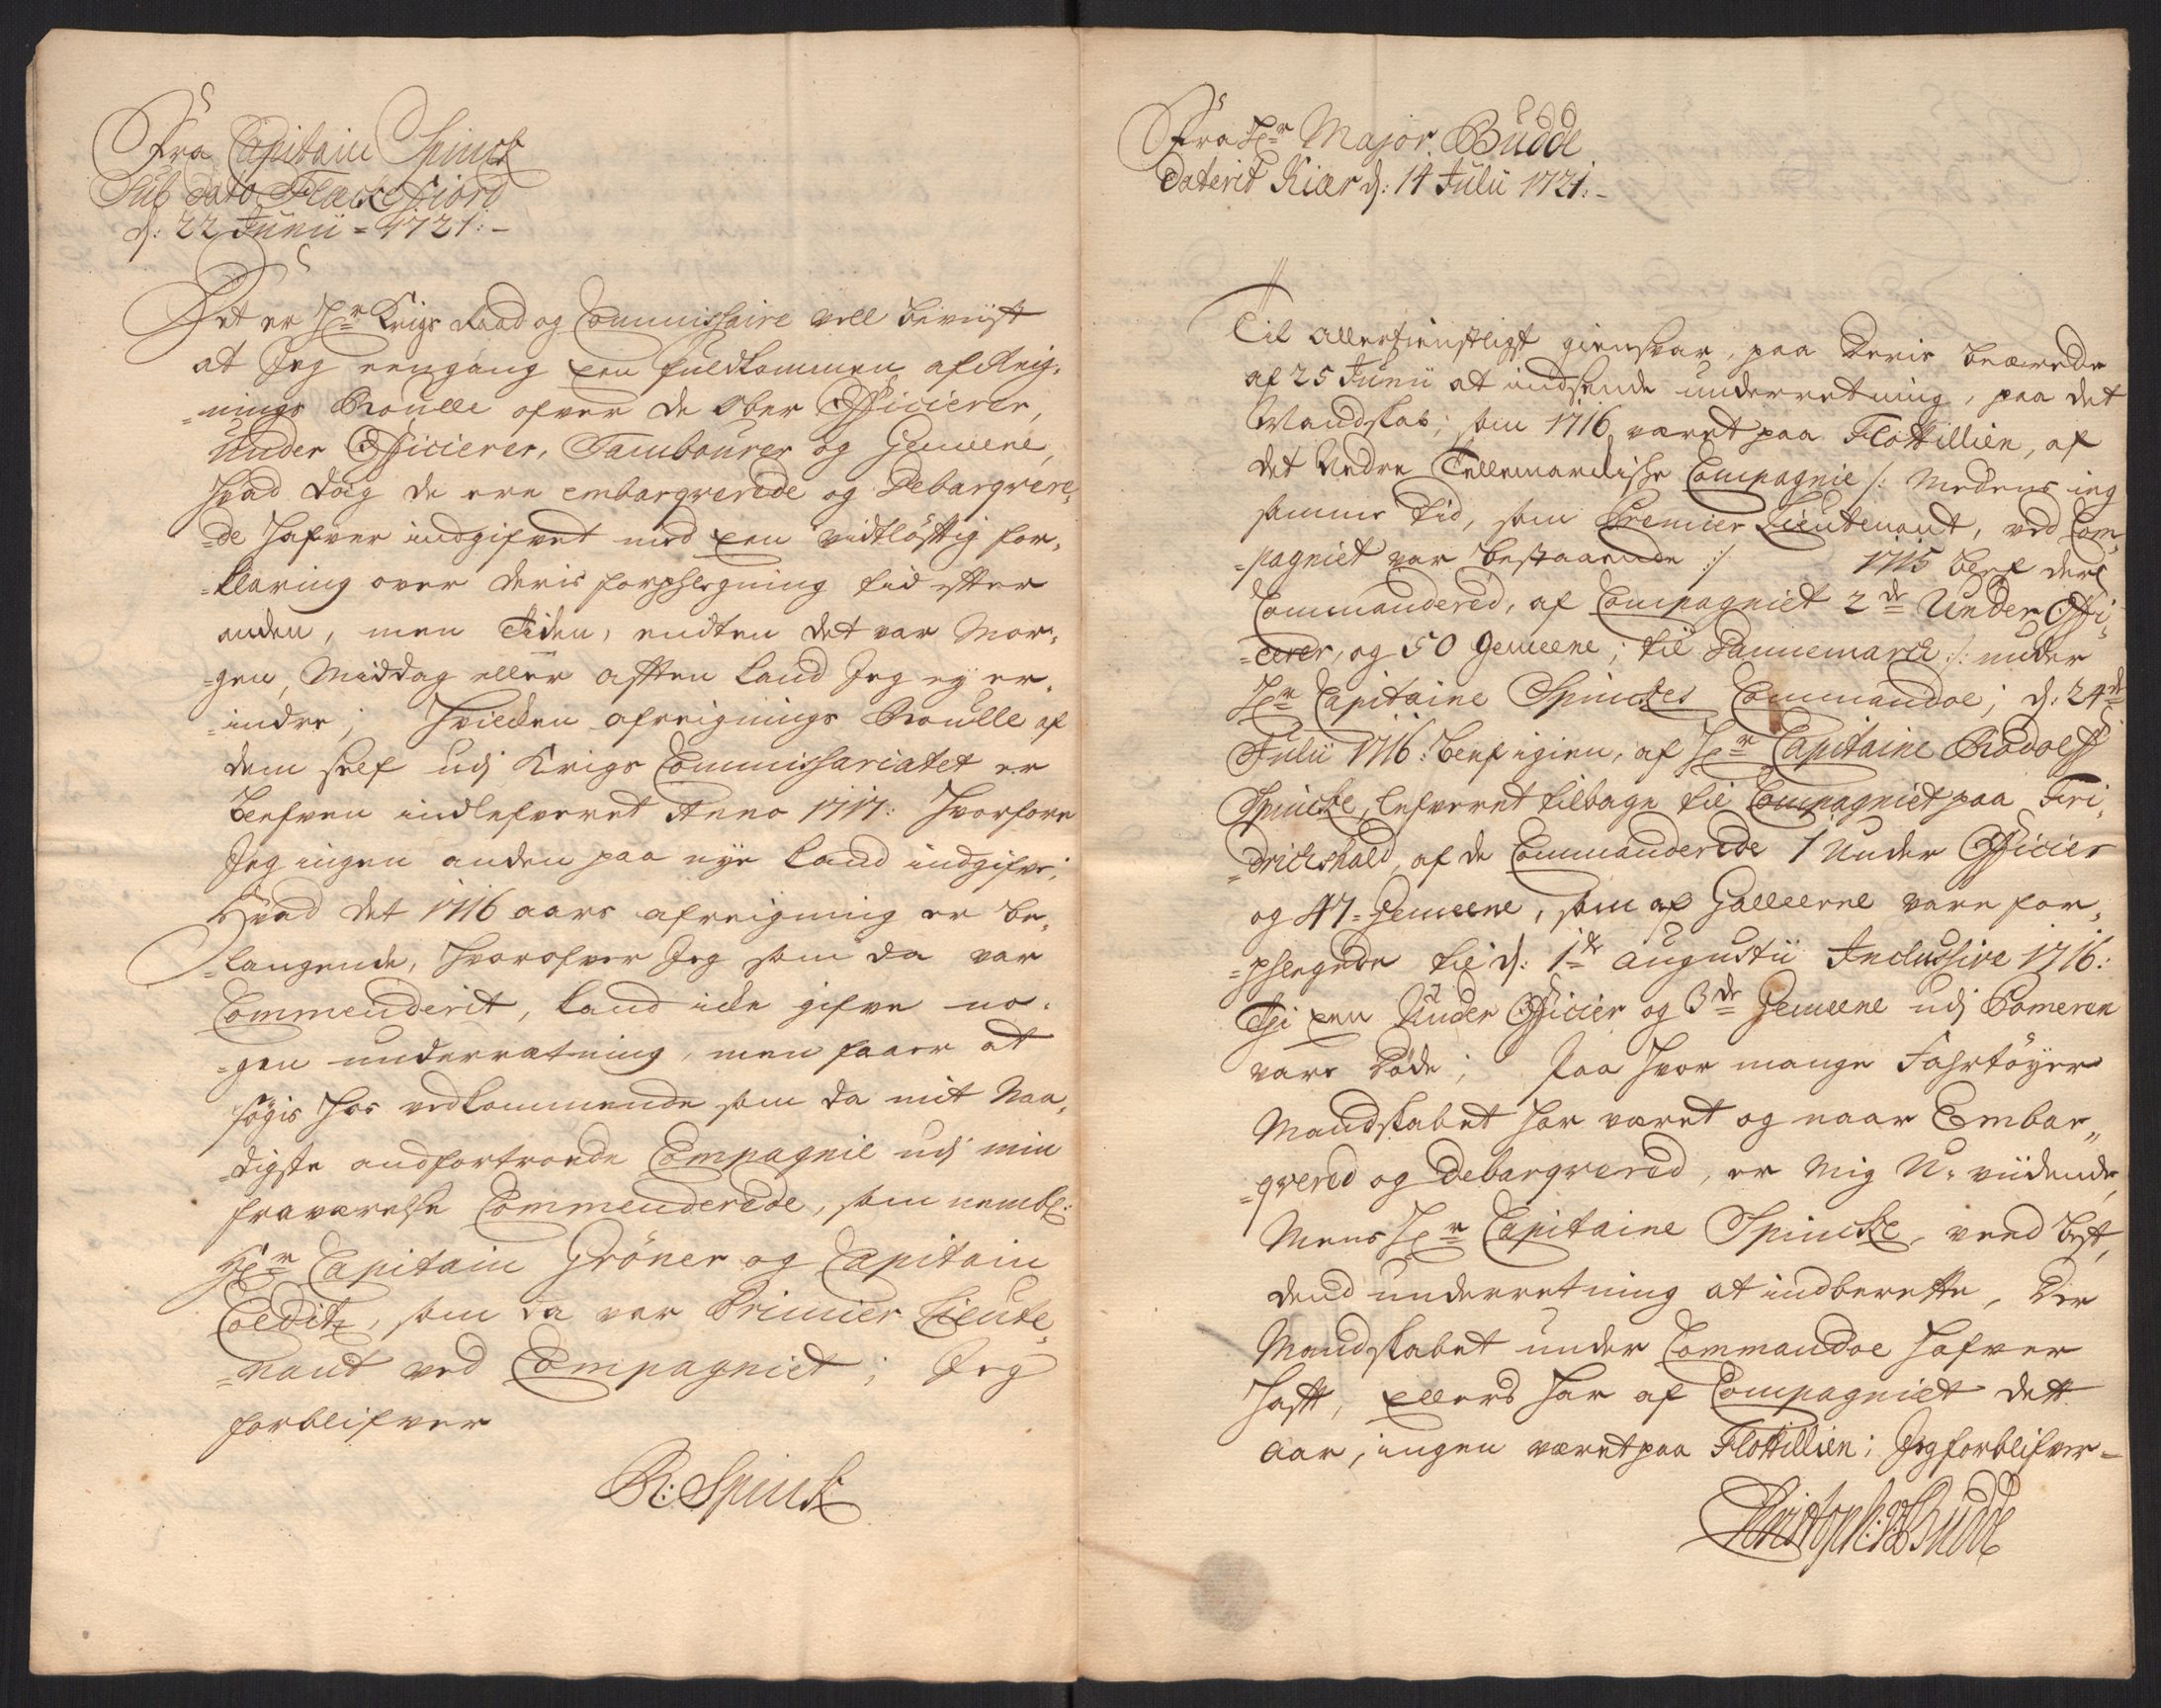 Fra Capitain Spinck
Sub dato Fleckefiord
d: 22 Junii = 1721:-
Det er Hr Krigs Raad og Commissaire vell beviist
at Jeg eengang een fuldkommen afreig-
=nings Roulle ofver de Ober Officierer,
Under Officierer, Tambourer og Gemeene,
hvad dag de ere embarqverede og Debarqvere-
=de hafver indgifvet med een vidtlöftig for-
=klaring over deris forpflegning tid efter
anden, men Tiden, endten det var Mor-
=gen, Middag eller afften kand Jeg ej er-
=indre; hvilcken afreignings Roulle af
dem self udj Krigs Commissariatet er
blefven indlefveret Anno 1717: hvorfore
Jeg ingen anden paa nye kand indgifve;
Hvad det 1716 aars afreigning er be-
=langende, hvorofver Jeg som da var
Commenderit, kand icke gifve no-
=gen underretning, men faaer at
søgis hos vedkommende som da mit Naa-
=digste andfortroede Compagnie udj min
fraværelse Commenderede, som nembl:
Hr Capitain Gröner og Capitain
Colditz, som da var Primier Lieute-
=nant ved Compagniet; Jeg
forblifver
R: Spinck
Fra Hr Major Budde
daterit Kiær d: 14 Julii 1721:-
Til allertienstligst giensvar, paa Deris beærede
af 25 Junii at indsende underretning, paa det
Mandskab; som 1716 været paa Flottillien, af
det Nedre Tellemarckske Compagnie /: Medens ieg
samme tid, som Premier Lieutenant, ved Com-
=pagniet var bestaaende :/ 1715 blef der
Commandered, af Compagniet 2de Under Offi-
=cerer, og 50 Gemeene; til Dannemarck :/: under
Hr Capitaine Spinckes Commandoe; d: 24de
Julii 1716: blef igien, af Hr Capitaine Rodolff
Spincke, lefveret tilbage til Compagniet paa Fri-
=drichshald, af de Commanderede 1 Under Officier
og 47 = Gemeene, som af Galleerne vare for-
=pflegede til d: 1te Augustii Inclusive 1716:
Thi een Under Officier og 3de Gemeene udj Pomeren
vare døde; Paa hvor mange Fahrtöyer
Mandskabet har været og naar Embar-
=qvered og debarqvered, er Mig U-viidende,
Mens Hr Capitaine Spincke, veed best,
dend underretning at indberette, der
Mandskabet under Commandoe hafver
hafft, ellers har af Compagniet dett
aar, ingen været paa Flottillien; Jeg forblifver =
Christoph: Budde